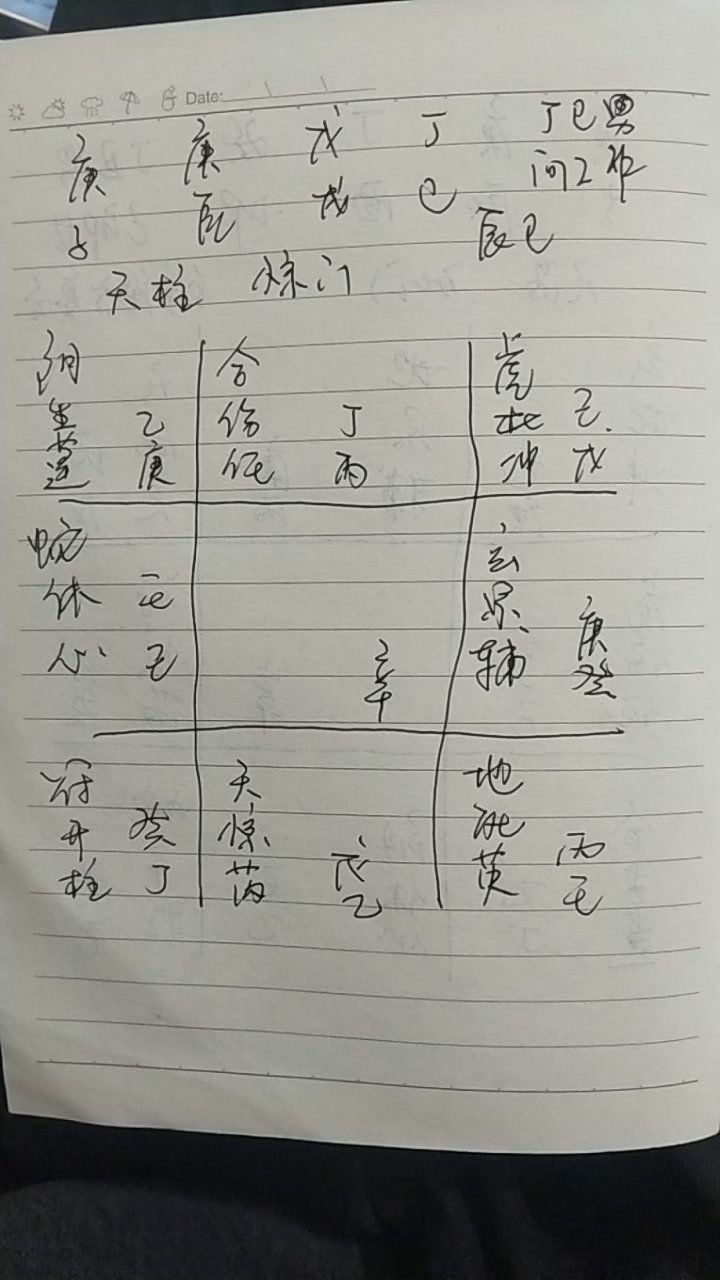 Date:
庚 庚 戊 丁 丁巳男
子 辰 戌 巳 问工作
辰巳
天柱 惊门
阴 合 虎
生 乙 伤 丁 杜 己
蓬 庚 任 丙 冲 戊
蛇 玄
休 壬 景 庚
心 己 辛 辅 癸
符 天 地
开 癸 惊 戊 死 丙
柱 丁 芮 乙 英 壬